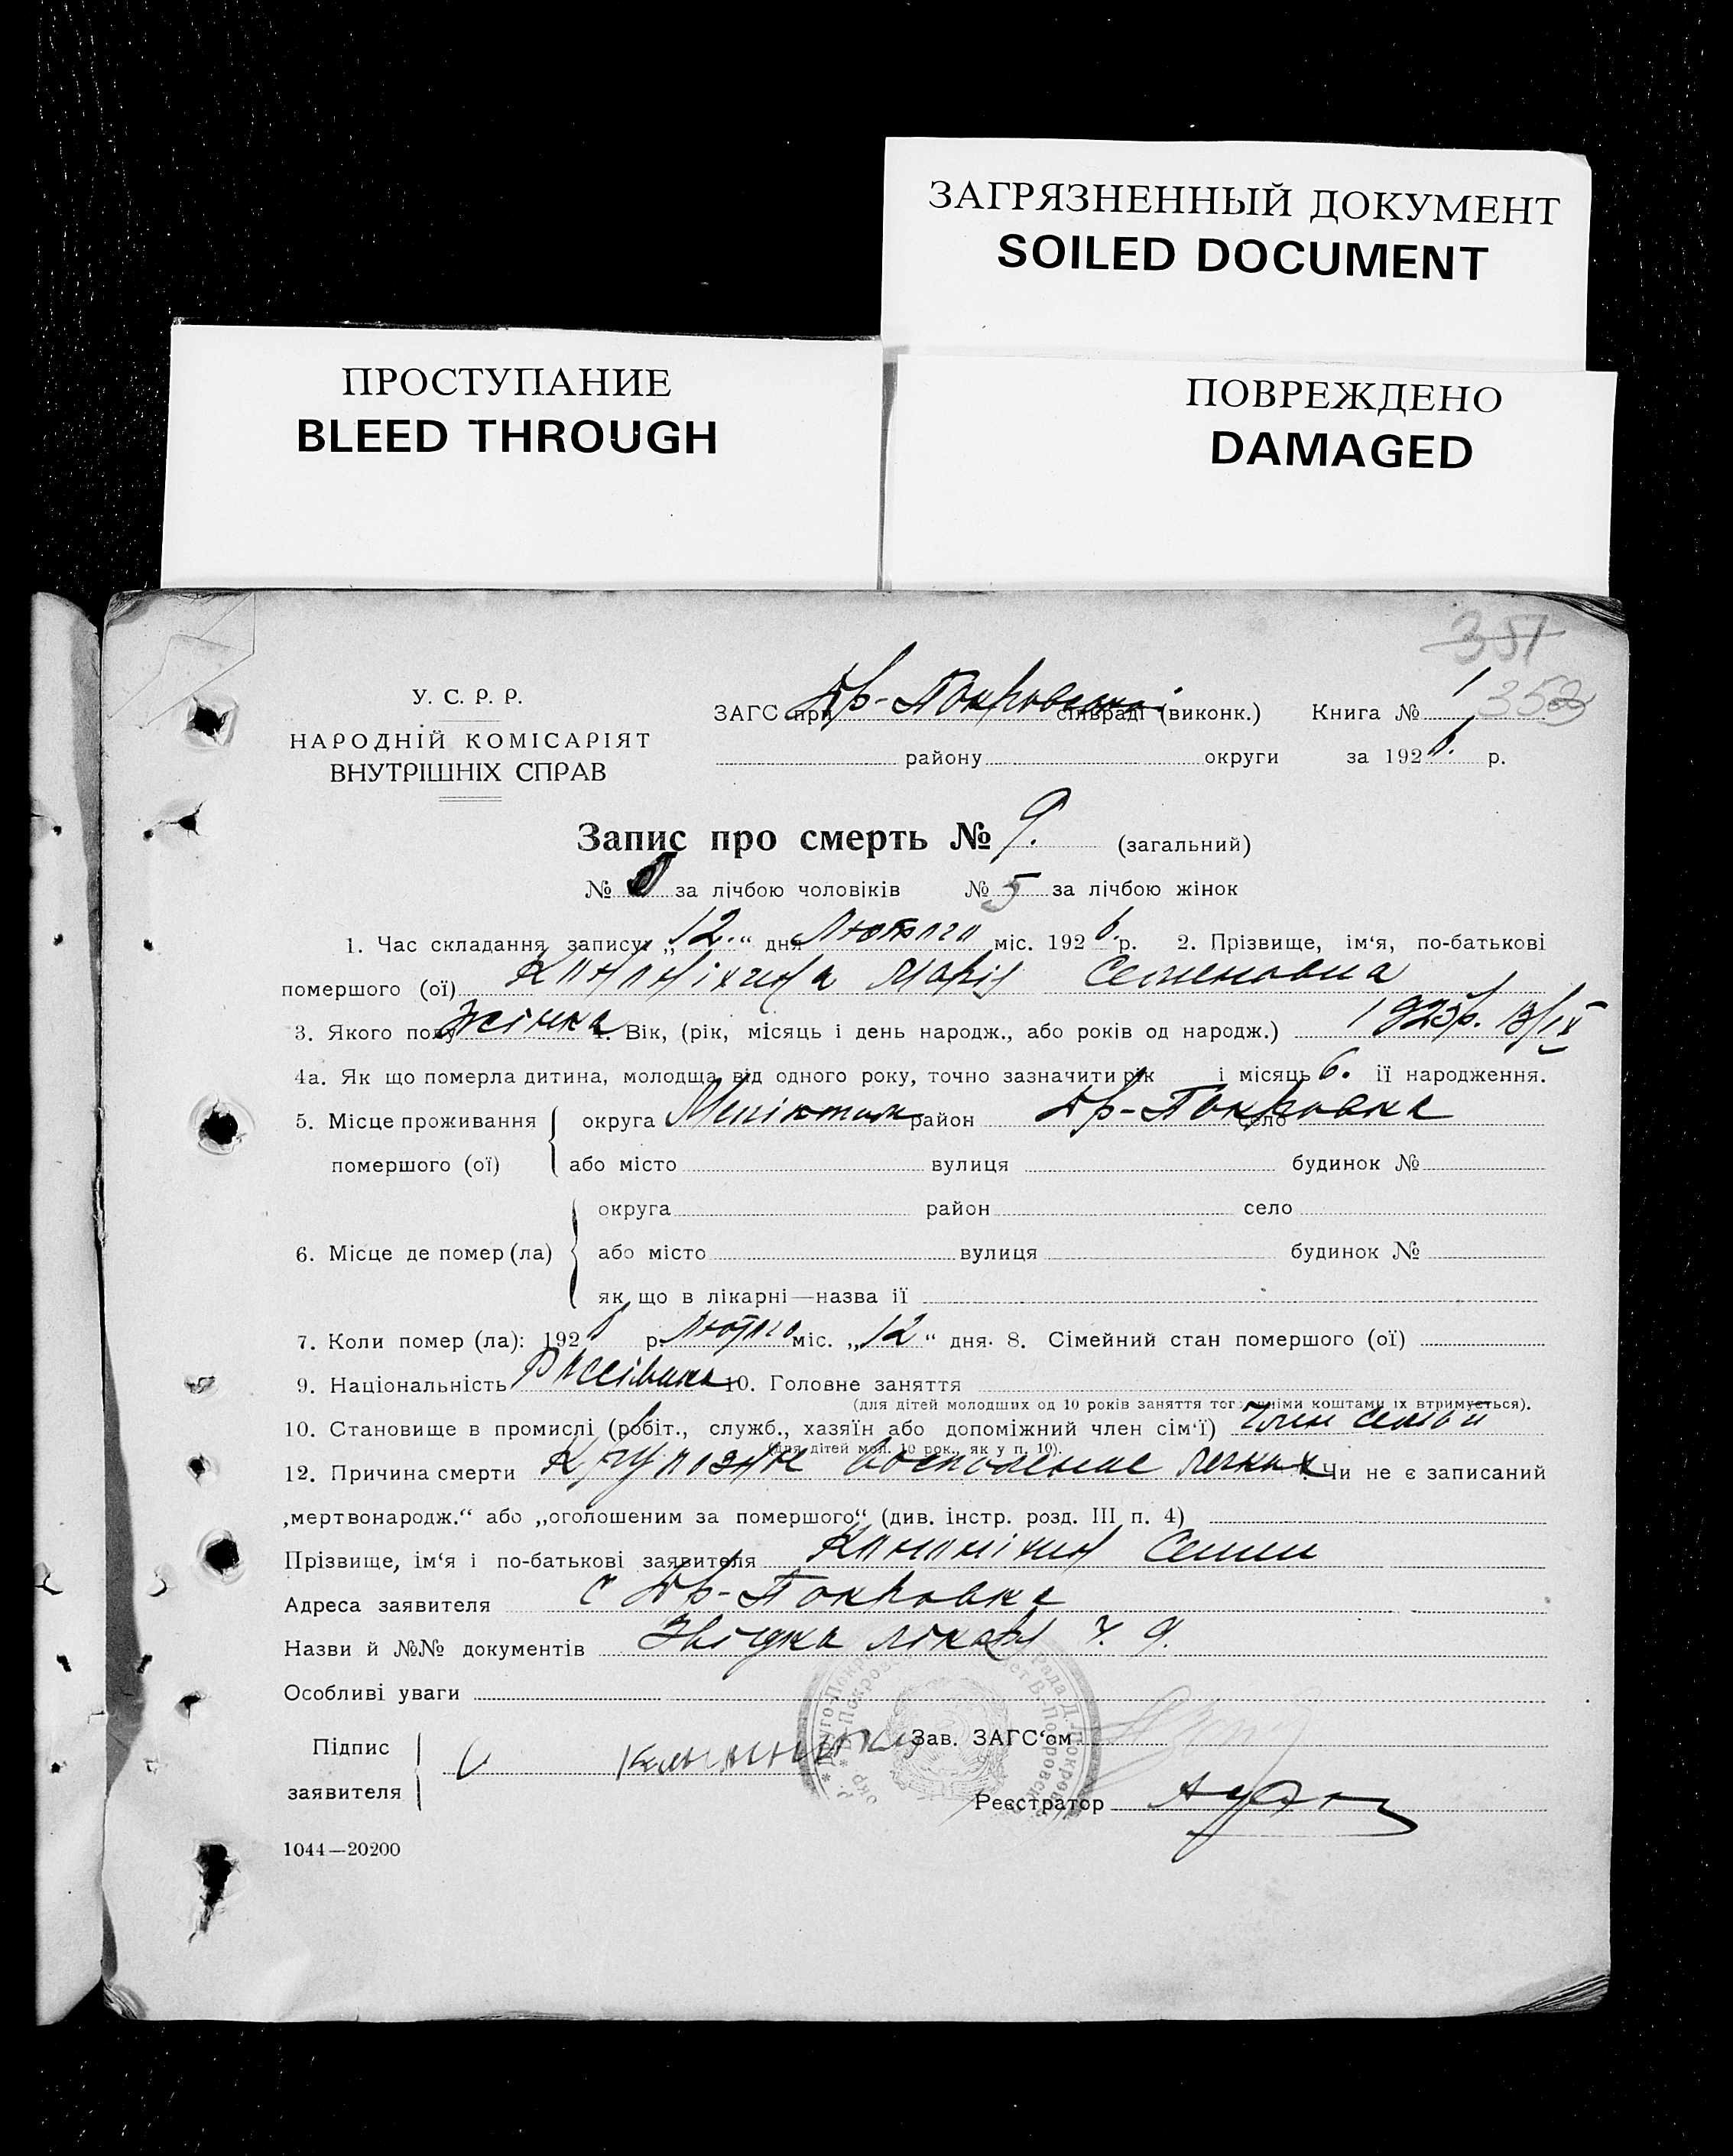 ЗАГРЯЗНЕННЫЙ ДОКУМЕНТ
SOILED DOCUMENT
ПРОСТУПАНИЕ
BLEED THROUGH
ПОВРЕЖДЕНО
DAMAGED
351
352
У. С. Р. Р.
НАРОДНІЙ КОМІСАРІЯТ
ВНУТРІШНІХ СПРАВ
ЗАГС при Др-Покровській сільраді (виконк.) Книга № 1
району округи за 1926 р.
Запис про смерть № 9. (загальний)
№ за лічбою чоловіків № 5 за лічбою жінок
1. Час складання запису: „12.“ дня Лютого міс. 1926 р. 2. Прізвище, ім'я, по-батькові
помершого (ої) Марія Семеновна
3. Якого полу Жінка 4. Вік, (рік, місяць і день народж., або років од народж.) 1925р. 13/IX
4а. Як що померла дитина, молодща від одного року, точно зазначити рік і місяць 6. її народження.
5. Місце проживання округа район Др-Покровка село
помершого (ої) або місто вулиця будинок №
округа район село
6. Місце де помер (ла) або місто вулиця будинок №
як що в лікарні—назва її
7. Коли помер (ла): 1926 р. Лютого міс. „12“ дня. 8. Сімейний стан помершого (ої)
9. Національність 10. Головне заняття
(для дітей молодших од 10 років заняття того, чиїми коштами їх втримується).
10. Становище в промислі (робіт., служб., хазяїн або допоміжний член сім'ї) член семьи
(для дітей мол. 10 рок., як у п. 10).
12. Причина смерти Крупозне воспаление легких. Чи не є записаний
„мертвонародж.“ або „оголошеним за помершого“ (див. інстр. розд. III п. 4)
Прізвище, ім'я і по-батькові заявителя Семен
Адреса заявителя с Др-Покровка
Назви й №№ документів Звідка лікаря Ч. 9.
Особливі уваги
Підпис
заявителя
Зав. ЗАГС'ом
Реєстратор
1044—20200